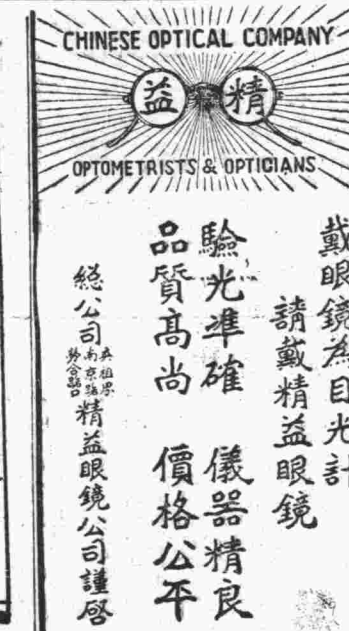 CHINESE OPTICAL COMPANY
精益
OPTOMETRISTS & OPTICIANS
戴眼鏡為目光計
請戴精益眼鏡
驗光準確 儀器精良
品質高尚 價格公平
總公司英租界南京路勞合路口精益眼鏡公司謹啓